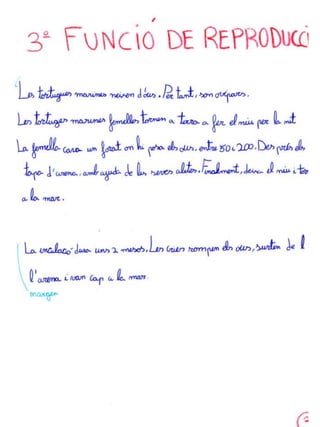 3ª FUNCIÓ DE REPRODUCCI
Les tortugues marines neixen d'óus. Per tant, son ovípares.
Les tortugues marines femelles tornen a terra a fer el niu per la nit
La femella cava un forat on hi posa els ous, entre 80 i 200. Després els
tapa d'arena, amb ajuda de les seves aletes. Finalment, deixa el niu i to
a la mar.
La incubació dura uns 2 mesos. Les cries rompen els ous, surten de l
l'arena i van cap a la mar.
margen